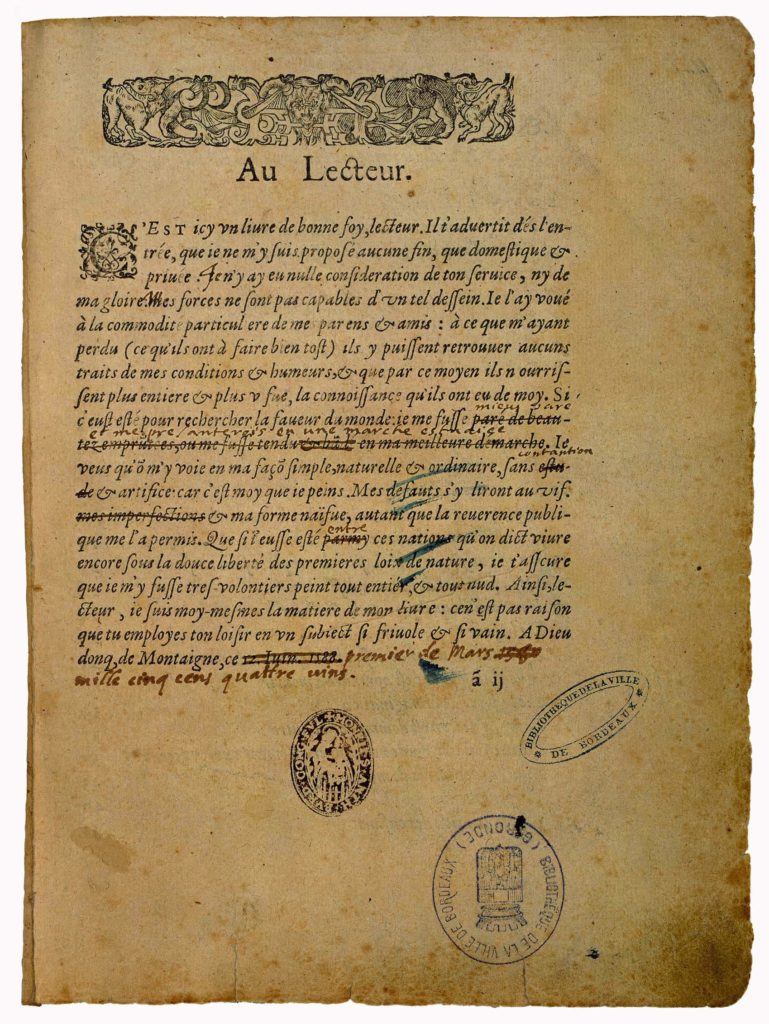 Au Lecteur.
C'EST icy vn liure de bonne foy, lecteur. Il t'aduertit dés l'en-
trée, que ie ne m'y suis proposé aucune fin, que domestique &
priuée. Ie n'y ay eu nulle consideration de ton seruice, ny de
ma gloire. Mes forces ne sont pas capables d'vn tel dessein. Ie l'ay voué
à la commodité particul ere de me parens & amis : à ce que m'ayant
perdu (ce qu'ils ont à faire bien tost) ils y puissent retrouuer aucuns
traits de mes conditions & humeurs, & que par ce moyen ils n ourris-
sent plus entiere & plus v fue, la connoissance qu'ils ont eu de moy. Si
c'eust esté pour rechercher la faueur du monde: ie me fusse paré de beau-
mieus paré
et me pre santerois en une marche estudiee
tez empruntées, ou me fusse tendu & bãdé en ma meilleure démarche. Ie
veus qu'õ m'y voie en ma façõ simple, naturelle & ordinaire, sans estu-
contantion
de & artifice: car c'est moy que ie peins. Mes défauts s'y liront au vif.
mes imperfections & ma forme naïfue, autant que la reuerence publi-
que me l'a permis. Que si i'eusse esté parmy ces nations qu'on dict viure
entre
encore sous la douce liberté des premieres loix de nature, ie t'asseure
que ie m'y fusse tres-volontiers peint tout entier, & tout nud. Ainsi, le-
cteur, ie suis moy-mesmes la matiere de mon liure : ce n'est pas raison
que tu employes ton loisir en vn subiect si friuole & si vain. A Dieu
donq, de Montaigne, ce 12 Iuin. 1588. premier de Mars 1580
mille cinq cens quattre vins.
ã ij
BIBLIOTHEQUE DE LA VILLE
DE BORDEAUX
BIBLIOTHÈQUE DE LA VILLE DE BORDEAUX (GIRONDE)